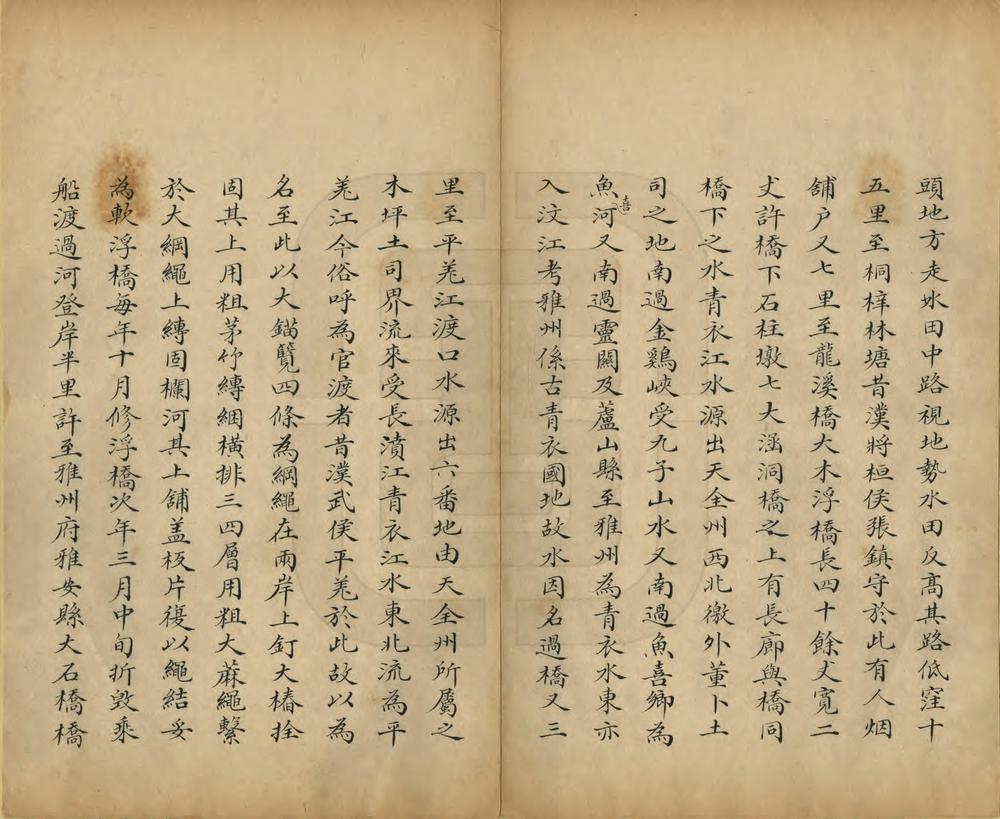 頭地方走水田中路視地勢水田反髙其路低窪十
五里至桐梓林塘昔漢將桓侯張鎮守於此有人烟
舖户又七里至龍溪橋大木浮橋長四十餘丈寬二
丈許橋下石柱墩七大涵洞橋之上有長廊與橋同
橋下之水青衣江水源出天全州西北徼外董卜土
司之地南過金鷄峽受九子山水又南過魚喜鄉為
魚喜河又南過靈關及蘆山縣至雅州為青衣水東亦
入汶江考雅州係古青衣國地故水因名過橋又三
里至平羌江渡口水源出六番地由天全州所屬之
木坪土司界流來受長濆江青衣江水東北流為平
羌江今俗呼為官渡者昔漢武侯平羌於此故以為
名至此以大錨覽四條為綱繩在兩岸上釘大樁拴
固其上用粗茅竹縛綑橫排三四層用粗大蔴繩繫
於大綱繩上縛固欄河其上舖盖板片復以繩結妥
為軟浮橋每年十月修浮橋次年三月中旬折毀乘
船渡過河登岸半里許至雅州府雅安縣大石橋橋